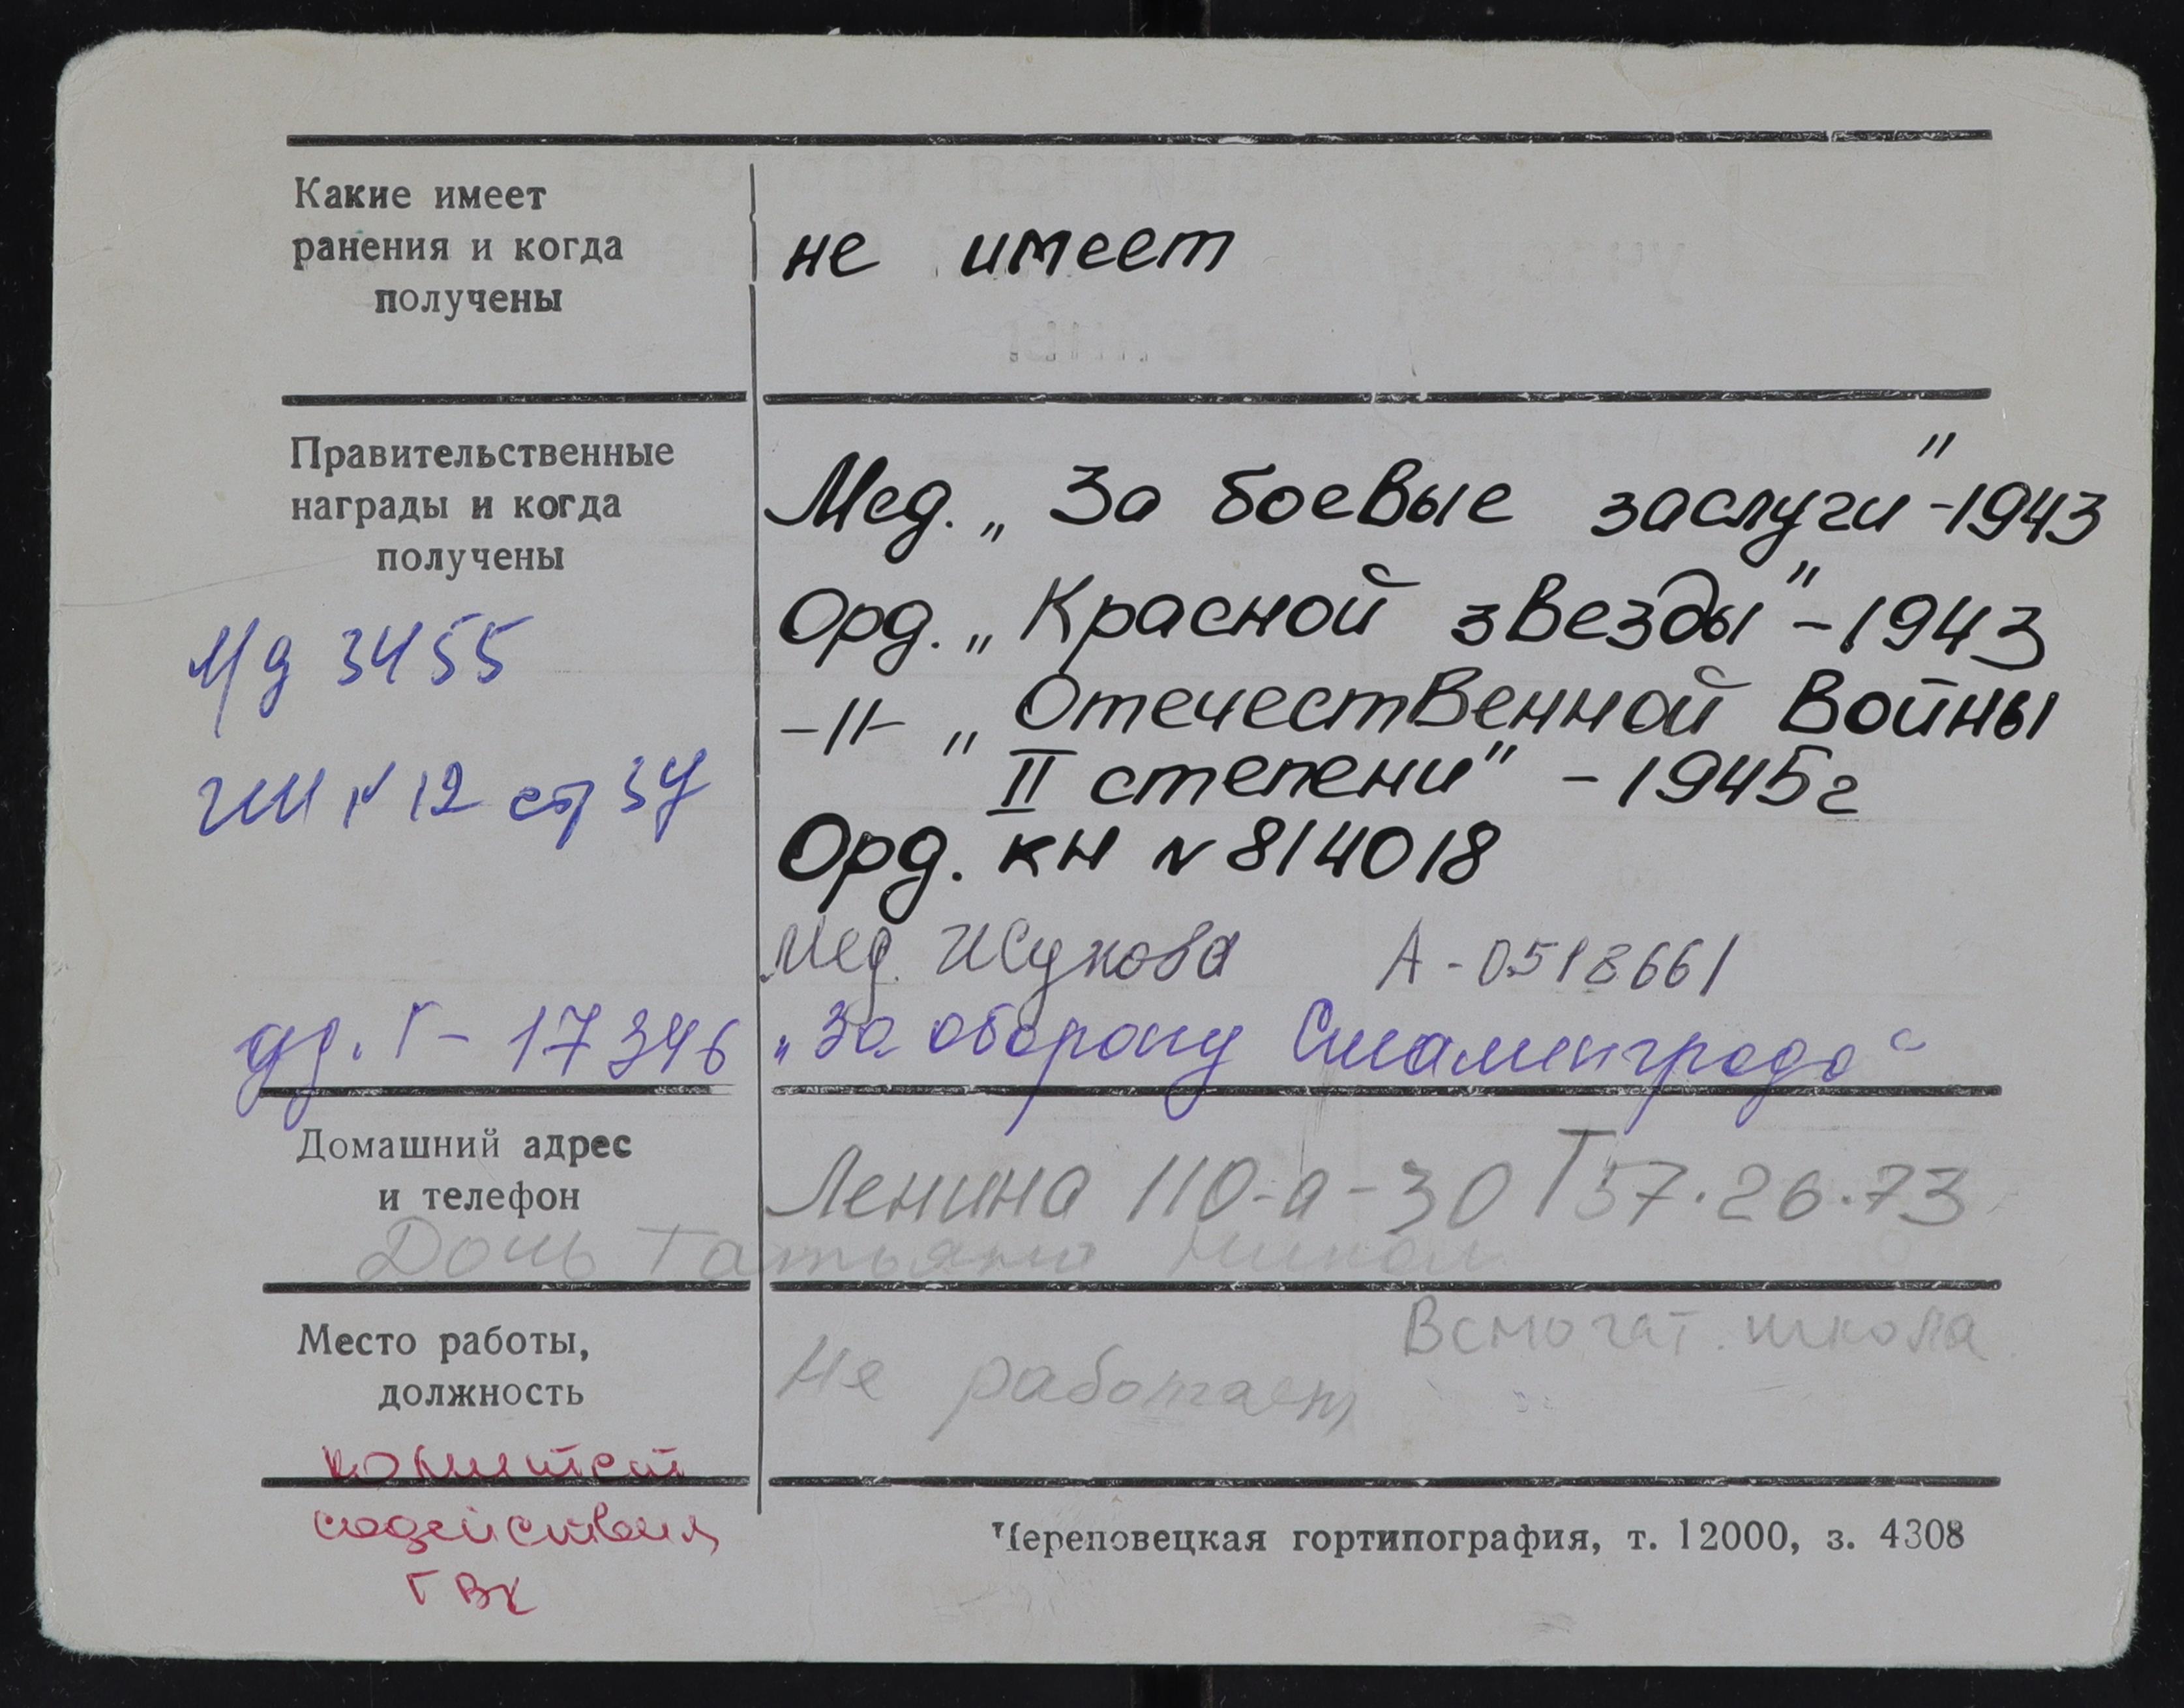 Какие имеет
ранения и когда
получены
не имеет
Правительственные
награды и когда
получены
Мед. „За боевые заслуги" - 1943
Орд. „Красной звезды" - 1943
-//- „Отечественной Войны
II степени" - 1945г
Орд. кн № 814018
Мед. Жукова А-0518661
„За оборону Сталинграда"
Мд 3455
№ 12 стр
уд. Г-17346
Домашний адрес
и телефон
Ленина 110-а-30 Т 57.26.73
Дочь Татьяна Никол
Место работы,
должность
Всмогат. школа
Не работает
комитет
содействия
ГВК
Череповецкая гортипография, т. 12000, з. 4308